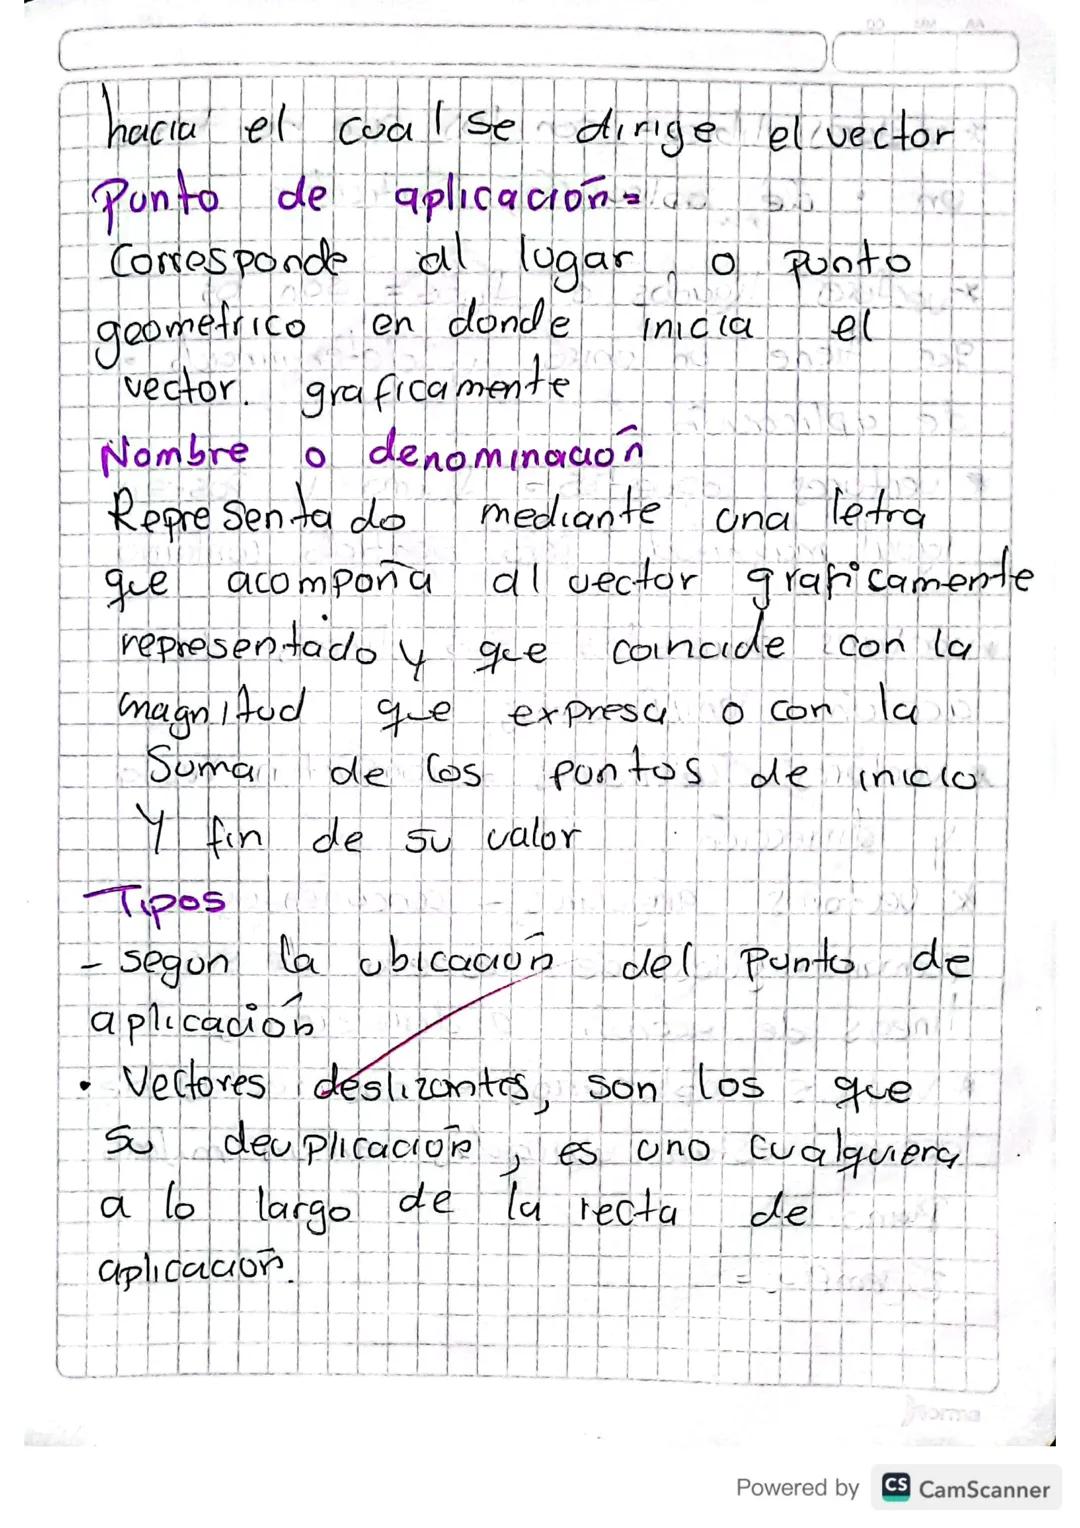 hacia el cual se dirige el vector
Punto de aplicación=
Corresponde al lugar o punto
geometrico en donde inicia el
vector. graficamente
Nombre o denominación
Representado mediante una letra
que acompaña al vector graficamente
representado y que coincide con la
magnitud que expresa o con la
Suma de los puntos de inicio
Y fin de su valor
Tipos
- segun la ubicación del Punto de
aplicación
• Vectores deslizantes, son los que
su deuplicación, es uno cualquiera
a lo largo de la recta de
aplicación.
Norma
Powered by CS CamScanner